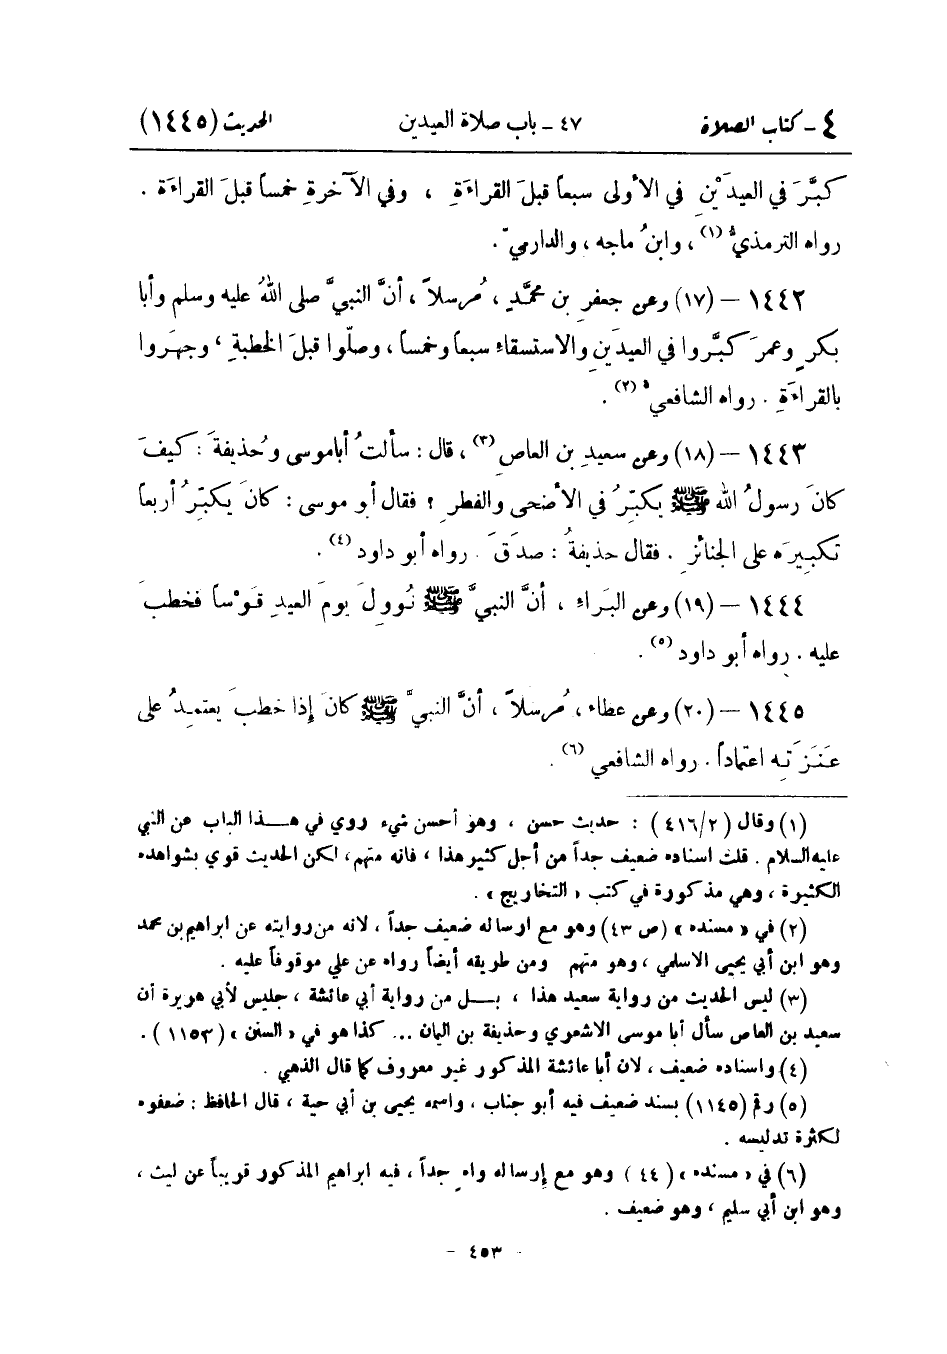 ٤ - كتاب الصلاة ٤٧ - باب صلاة العيدين الحديث (١٤٤٥)
كبَّرَ في العيدَيْنِ في الأولى سبعاً قبلَ القراءةِ ، وفي الآخرةِ خمساً قبلَ القراءة .
رواه الترمذيُّ (١) ، وابنُ ماجه ، والدارميّ .
١٤٤٢ – (١٧) وعن جعفرِ بن محمَّدٍ ، مُرسلاً ، أنَّ النبيَّ صلى اللهُ عليه وسلم وأبا
بكرٍ وعمرَ كبَّروا في العيدَينِ والاستسقاء سبعاً وخمساً ، وصلّوا قبلَ الخطبةِ ، وجهَروا
بالقراءَةِ . رواه الشافعيُّ (٢) .
١٤٤٣ – (١٨) وعن سعيدِ بن العاص (٣) ، قال : سألتُ أباموسى وحُذيفةَ : كيفَ
كانَ رسولُ الله ﷺ يكبّرُ في الأضحى والفطرِ ؟ فقال أبو موسى : كانَ يكبّرُ أربعاً
تكبيرَه على الجنائزِ . فقال حذيفةُ : صدَقَ . رواه أبو داود (٤) .
١٤٤٤ – (١٩) وعن البَراءِ ، أنَّ النبيَّ ﷺ نُوولَ يومَ العيدِ قَوْساً فخطبَ
عليه . رواه أبو داود (٥) .
١٤٤٥ – (٢٠) وعن عطاء ، مُرسلاً ، أنَّ النبيَّ ﷺ كانَ إذا خطبَ يعتمِدُ على
عَنَزَتِه اعتماداً . رواه الشافعي (٦) .
(١) وقال (٤١٦/٢) : حديث حسن ، وهو أحسن شيء روي في هـذا الباب عن النبي
عليه السلام . قلت اسناده ضعيف جداً من أجل كثير هذا ، فانه متهم ، لكن الحديث قوي بشواهده
الكثيرة ، وهي مذكورة في كتب « التخاريج » .
(٢) في « مسنده » (ص ٤٣) وهو مع ارساله ضعيف جداً ، لانه من روايته عن ابراهيم بن محمد
وهو ابن أبي يحيى الاسلمي ، وهو متهم ومن طريقه أيضاً رواه عن علي موقوفاً عليه .
(٣) ليس الحديث من رواية سعيد هذا ، بـل من رواية أبي عائشة ، جليس لأبي هريرة أن
سعيد بن العاص سأل أبا موسى الاشعري وحذيفة بن اليمان ... كذا هو في « السنن » (١١٥٣) .
(٤) واسناده ضعيف ، لان أبا عائشة المذكور غير معروف كما قال الذهبي .
(٥) رقم (١١٤٥) بسند ضعيف فيه أبو جناب ، واسمه يحيى بن أبي حية ، قال الحافظ : ضعفوه
لكثرة تدليسه .
(٦) في « مسنده » (٤٤) وهو مع إرساله واهٍ جداً ، فيه ابراهيم المذكور قريباً عن ليث ،
وهو ابن أبي سليم ، وهو ضعيف .
- ٤٥٣ -